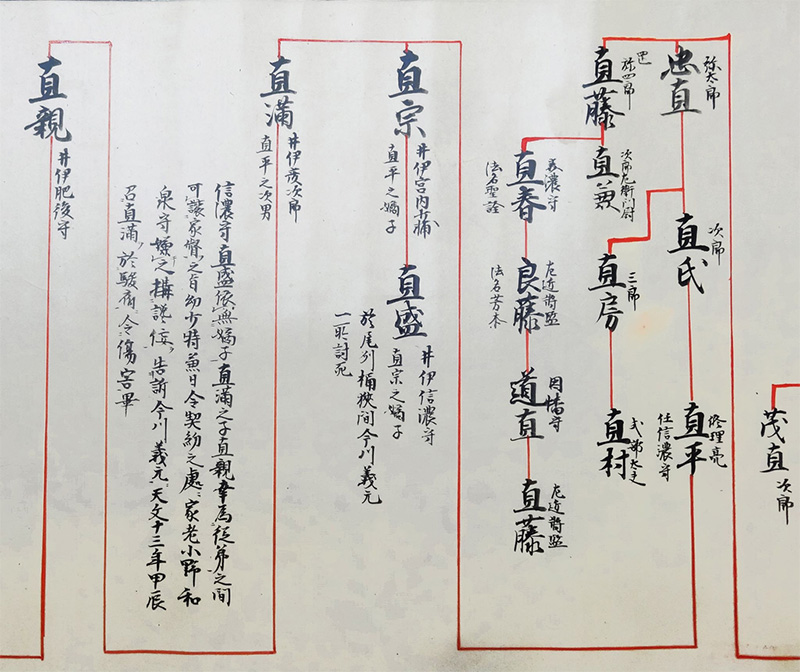 茂直
次郎
弥太郎
忠直
次郎
直氏
修理亮
直平
任信濃守
三郎
直房
式部大夫
直村
弥四郎
直藤
次郎左衛門尉
直兼
美濃守
直春
法名聖詮
左近将監
良藤
法名芳本
因幡守
道直
左近将監
直藤
直宗
井伊宮内少輔
直平之嫡子
直盛
井伊信濃守
直宗之嫡子
於尾州桶狭間今川義元
一所討死
直満
井伊彦次郎
直平之次男
信濃守直盛依無嫡子直満之子直親幸為従弟之間
可譲家督之旨幼少時兼日令契約之處、家老小野和
泉守嫌之構讒佞、告訴今川義元、天文十三年甲辰
召直満、於駿府、令傷害畢
直親
井伊肥後守